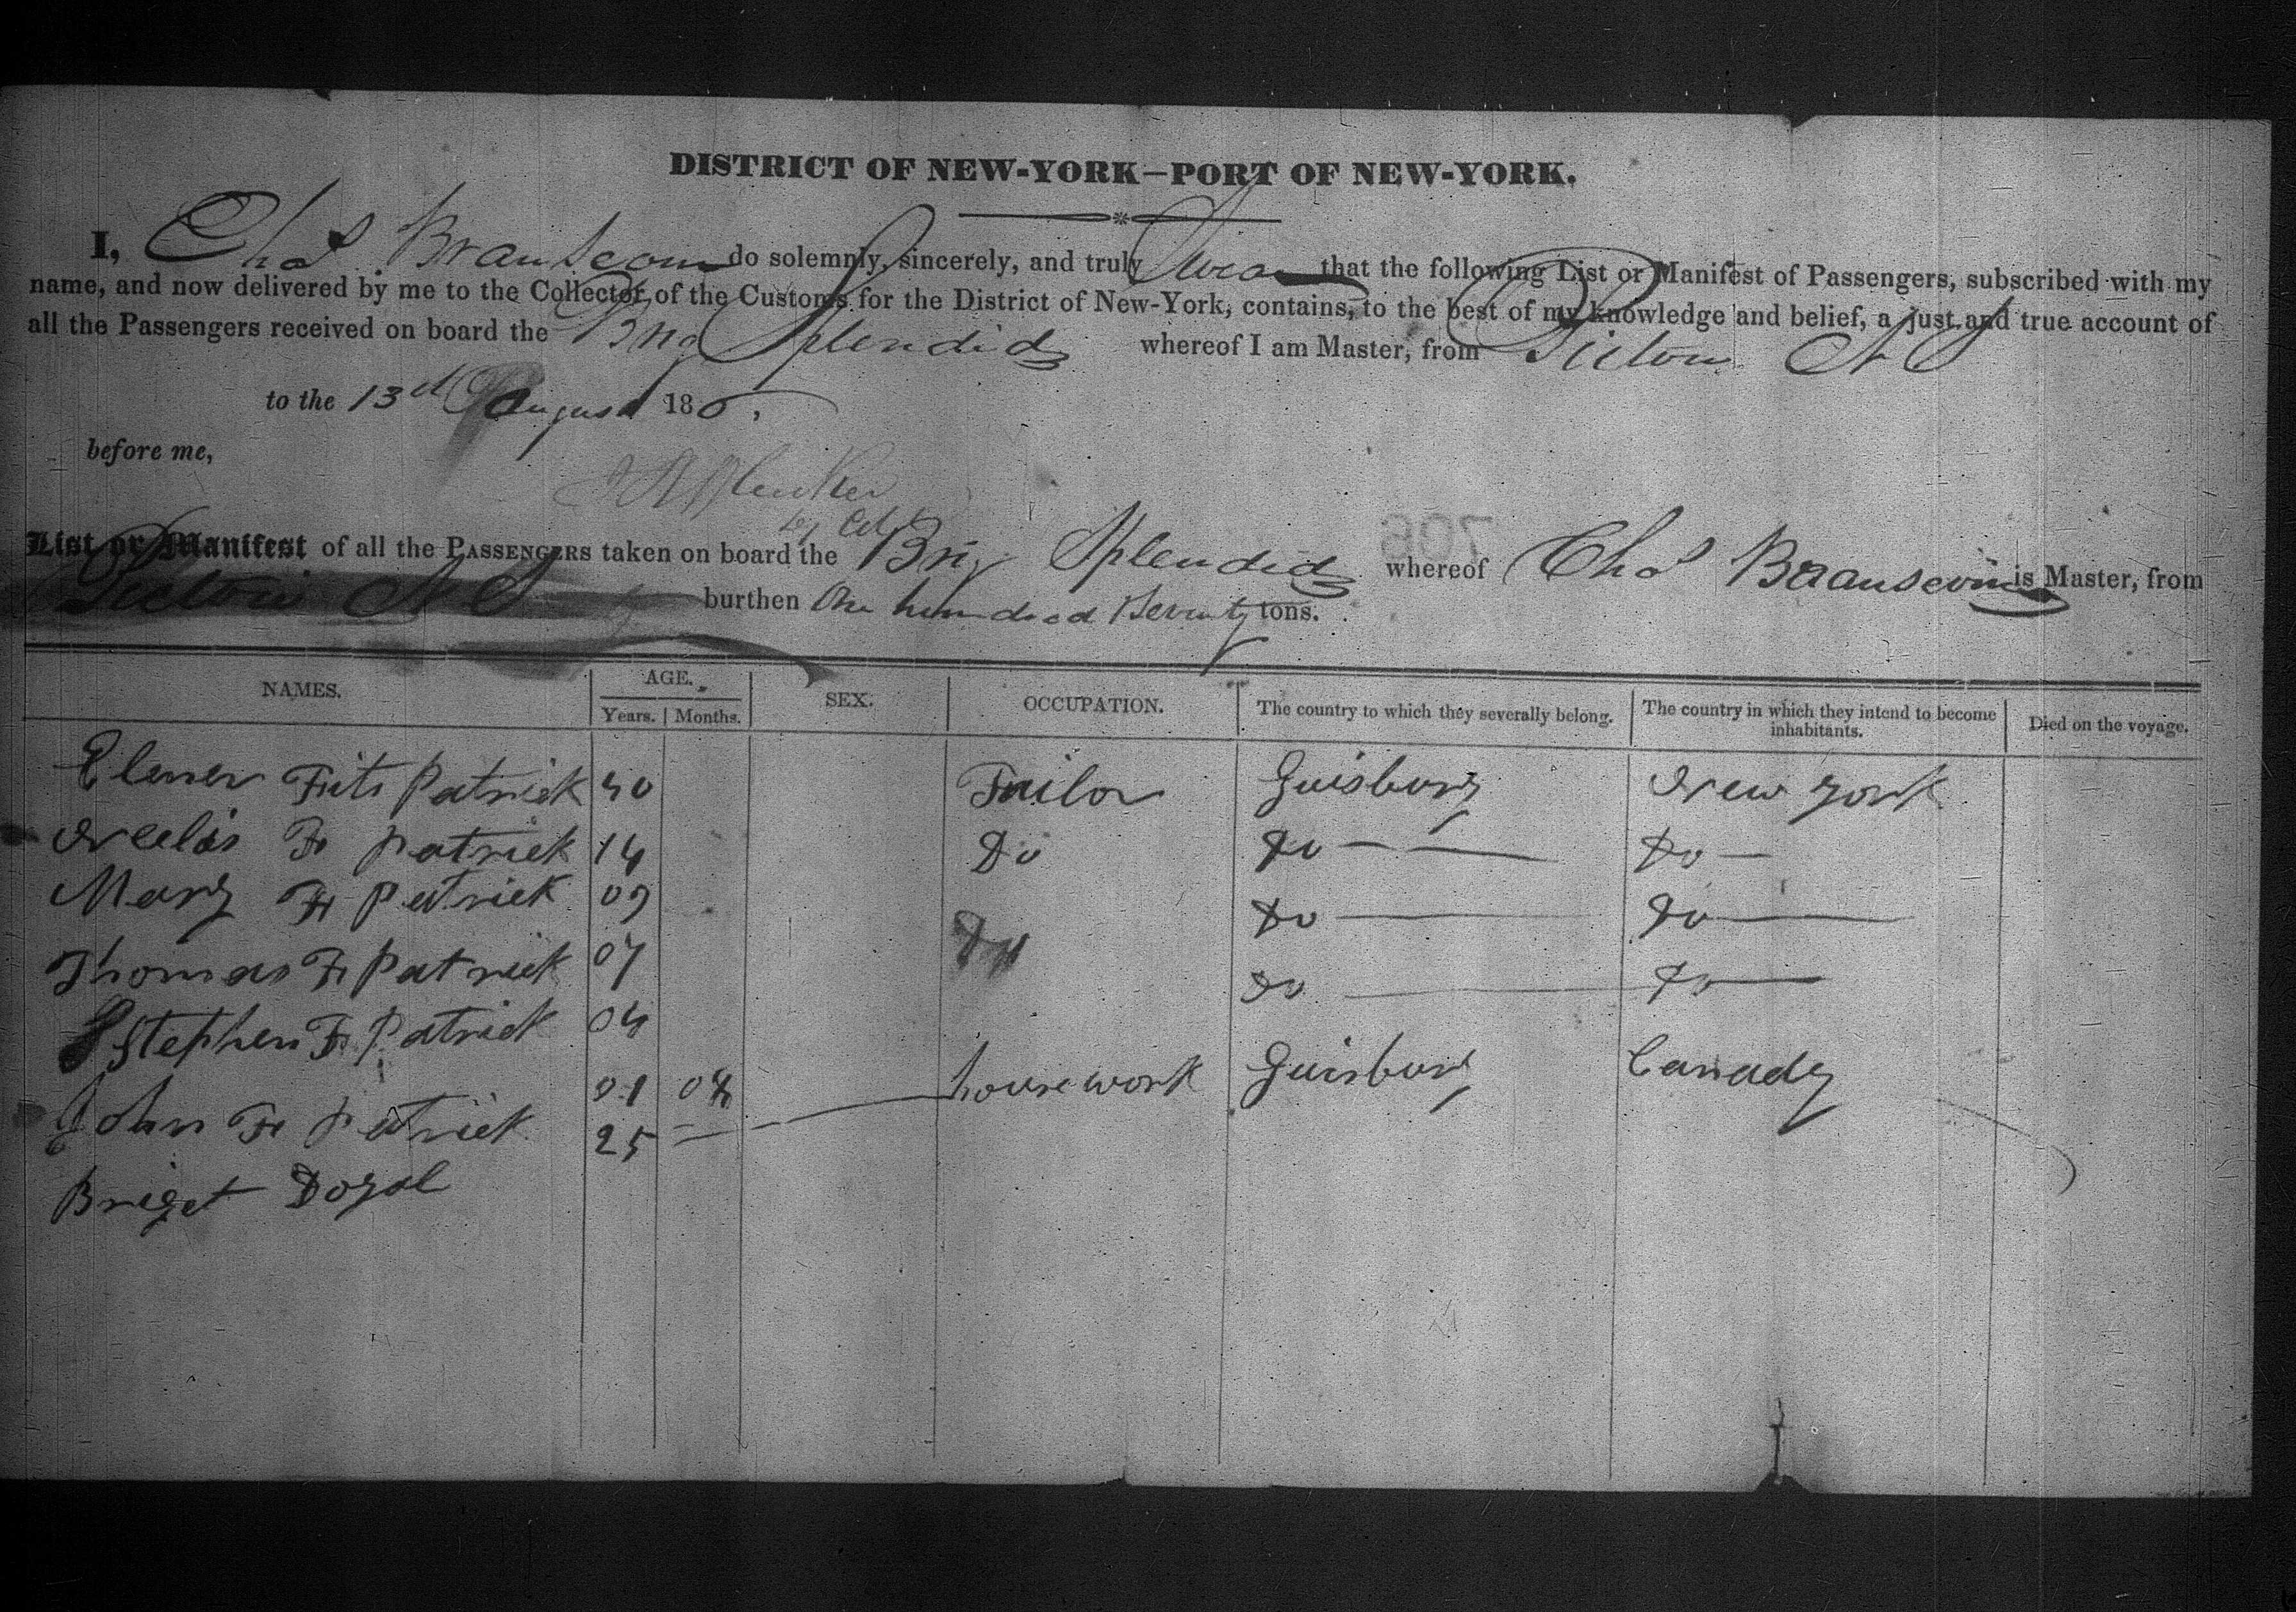 DISTRICT OF NEW-YORK—PORT OF NEW-YORK.
I, Chas Branscom do solemnly, sincerely, and truly Swear that the following List or Manifest of Passengers, subscribed with my
name, and now delivered by me to the Collector of the Customs for the District of New-York, contains, to the best of my knowledge and belief, a just and true account of
all the Passengers received on board the Brig Splendid whereof I am Master, from Pictou N S
to the 13th August 18
before me,
List or Manifest of all the PASSENGERS taken on board the Brig Splendid whereof Chas Branscom is Master, from
Pictou N S burthen One hundred Seventy tons.
706
NAMES. AGE. Years. Months. SEX. OCCUPATION. The country to which they severally belong. The country in which they intend to become inhabitants. Died on the voyage.
Elener Fits Patrick 40 Tailor Guisbury New York
Fr Patrick 14 Do Do Do
Mary Fr Patrick 09 Do Do
Thomas Fr Patrick 07 Do Do Do
Stephen Fr Patrick 04
John Fr Patrick 01 08 house work Guisbury Canady
Briget Doyal 25